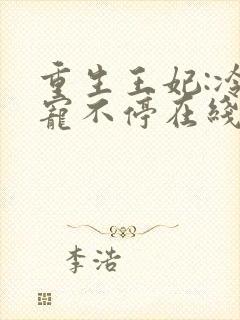 重生王妃:冷
宠不停在线
李浩